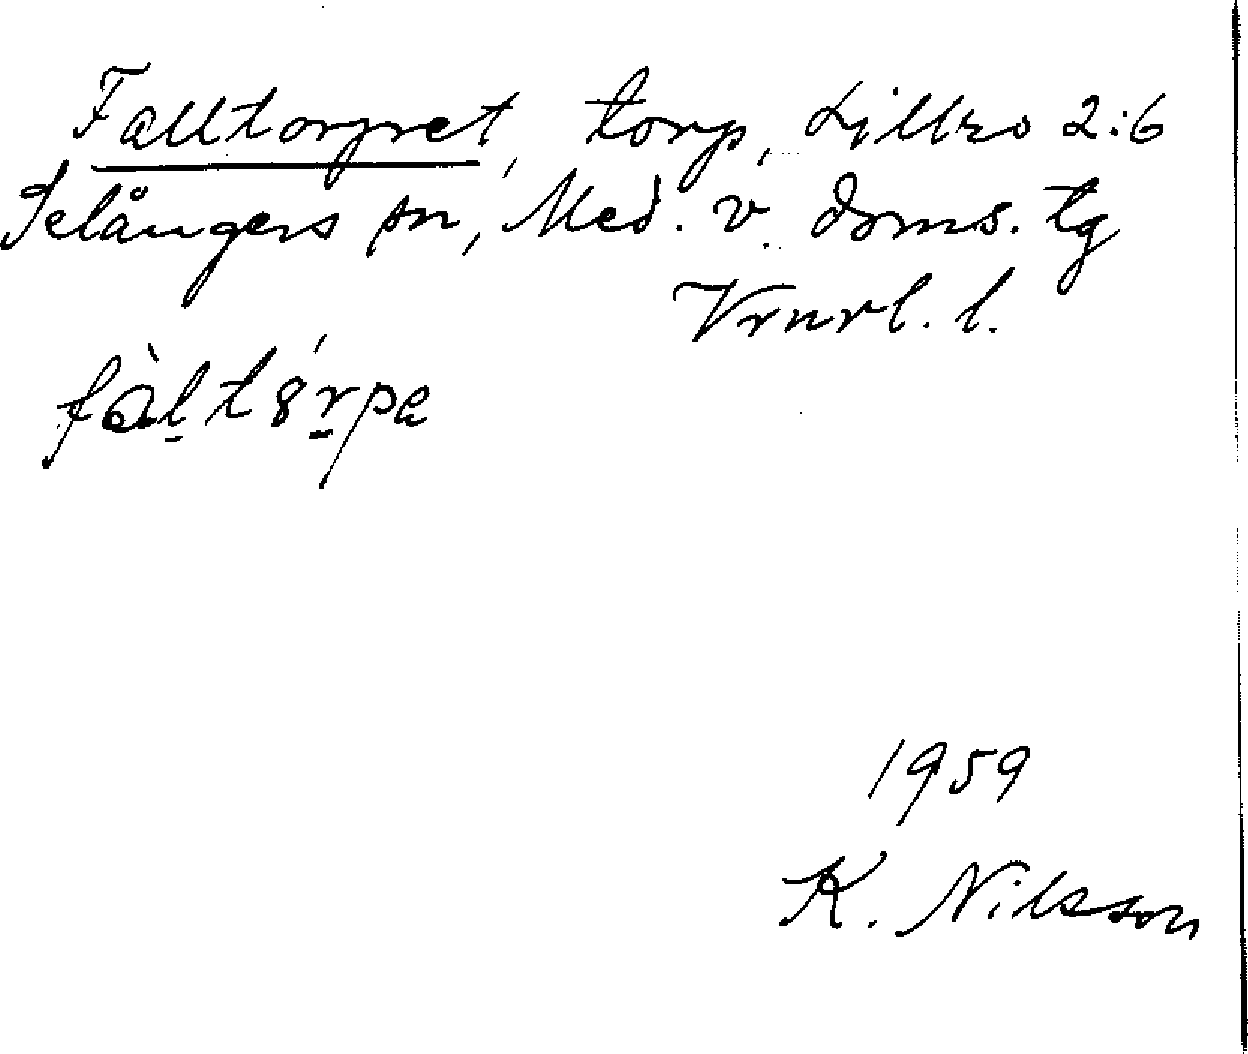 Falltorpet, torp, Lillro 2:6
Selångers sn, Med. v. doms. tg
Vrnrl. l.
fàl̠t8́r̠pe
1959
K. Nilsson